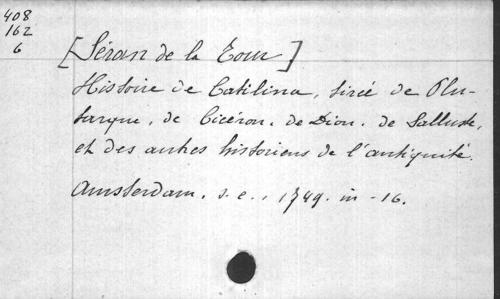 408
162
6
[Séran de la Tour]
Histoire de Catilina, tirée de Plu-
tarque, de Cicéron, de Dion, de Salluste,
et des autres historiens de l'antiquité.
Amsterdam. s. e., 1749. in-16.